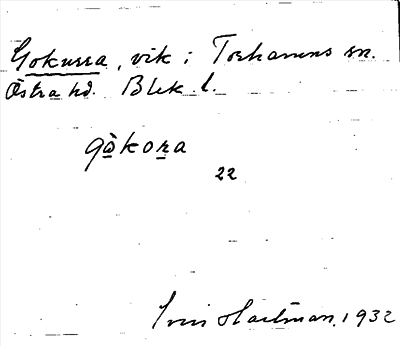 Gokurra, vik i Torhamns sn.
Östra hd. Blek. l.
gòkora
22
Hartman, 1932